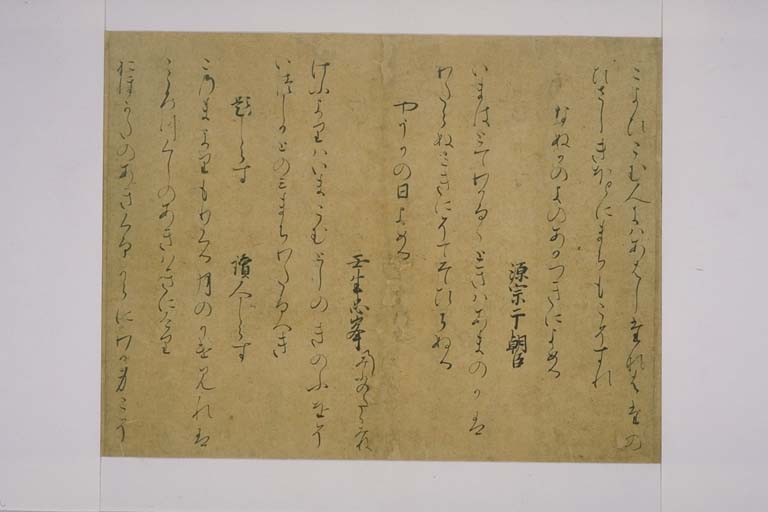 こよひこむ人にはあはしたなはたの
ひさしきほとにまちもこそすれ
なぬかのよのあかつきによめる
源宗于朝臣
いまはとてわかるゝときはあまのかは
わたらぬさきにそてそひちぬる
やうかの日よめる
壬生忠峯
けふよりはいまこむとしのきのふをそ
いつしかとのみまちわたるへき
題しらす 讀人しらす
このまよりもりくる月のかけ見れは
こゝろつくしのあきはきにけり
おほかたのあきくるからにわか身こそ